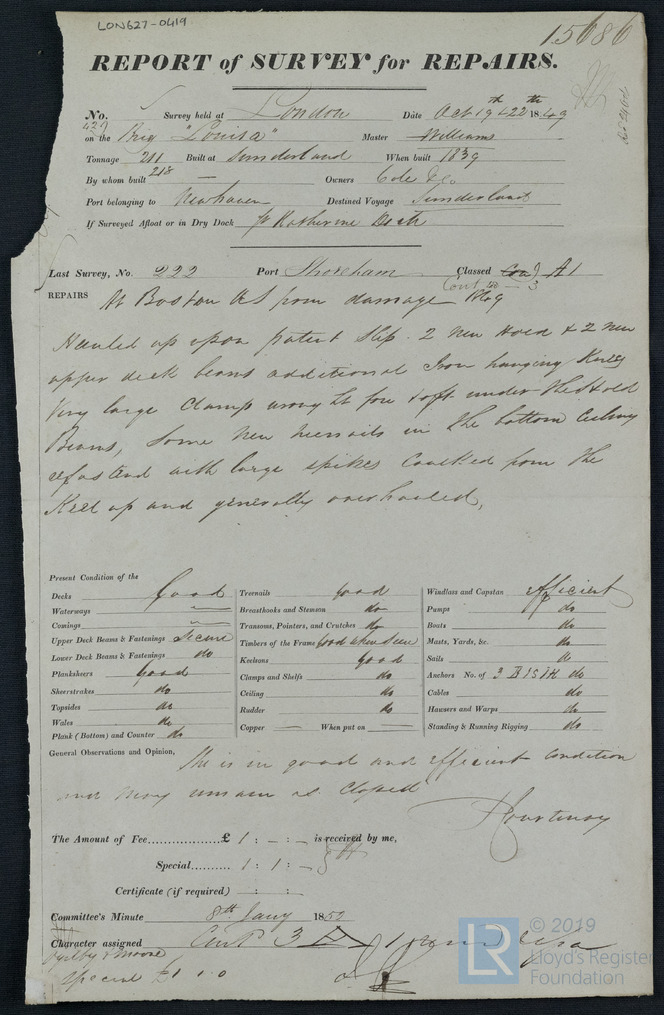 LON627-0419
15686
REPORT of SURVEY for REPAIRS.
No. Survey held at London Date Oct 19th & 22th 1849
427
on the Brig "Louisa" Master Williams
Tonnage 211 Built at Sunderland When built 1839
218
By whom built — Owners Cole & Co
Port belonging to Newhaven Destined Voyage Sunderland
If Surveyed Afloat or in Dry Dock St Katherine Dock
Last Survey, No. 222 Port Shoreham Classed A1
Cont 3
REPAIRS At Boston US from damage
Hauled up upon patent Slip. 2 new Hold & 2 new
upper deck beams additional Iron hanging Knees
Very large Clamp wrought fore & aft under the Hold
Beams, Some new treenails in the bottom Ceiling
refastend with large spikes Caulked from the
Keel up and generally overhauled,
Present Condition of the
Decks Good
Waterways
Comings
Upper Deck Beams & Fastenings Secure
Lower Deck Beams & Fastenings do
Planksheers Good
Sheerstrakes do
Topsides do
Wales do
Plank (Bottom) and Counter do
Treenails Good
Breasthooks and Stemson do
Transoms, Pointers, and Crutches do
Timbers of the Frame Good where Seen
Keelsons Good
Clamps and Shelfs do
Ceiling do
Rudder do
Copper — When put on —
Windlass and Capstan Efficient
Pumps do
Boats do
Masts, Yards, &c. do
Sails do
Anchors No. of 3 B 1 S 1 K do
Cables do
Hawsers and Warps do
Standing & Running Rigging do
General Observations and Opinion, She is in good and efficient condition
and may remain as Classed
Courtenay
The Amount of Fee..................£ 1 : - : - is received by me,
Special.......... 1 : 1 : -
Certificate (if required) : :
Committee's Minute 8th Jany 1850
Character assigned Cont 3 A 1
Special £1.1.0
LR
© 2019
Lloyd's Register
Foundation